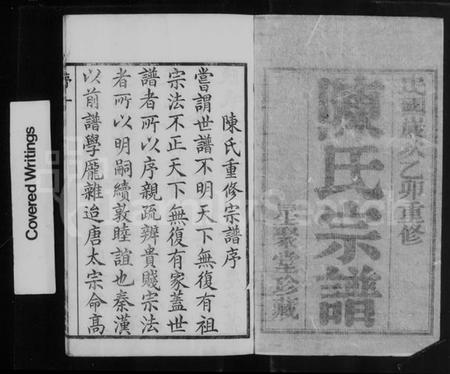 民國歲次乙卯重修
陳氏宗譜
聚堂珍藏
陳氏重修宗譜序
嘗謂世譜不明天下無復有祖
宗法不正天下無復有家蓋世
譜者所以序親疏辨貴賤宗法
者所以明嗣續敦睦誼也秦漢
以前譜學龐雜迨唐太宗命高
Covered Writings